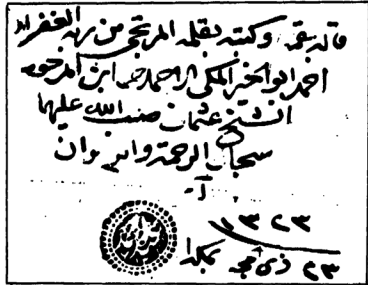 قاله بفمه وكتبه بقلمه المرتجي من ربه الغفران
احمد ابو الخير المكي الاحمدي ابن المرحوم
الشيخ عثمان صب الله عليهما
سجال الرحمة والرضوان
١٣٢٣
٢٣ ذي حجه